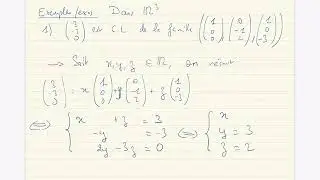 Exemples/exos Dans ℝ³
1) (3 -3 0) est C.L de la famille ((1 0 0), (0 -1 2), (1 0 -3))
→ Soit x, y, z ∈ ℝ, on résout
= x (1 0 0) + y (0 -1 2) + z (1 0 -3)
⟺ { x + z = 3 ⟺ { x
-y = -3 y = 3
2y - 3z = 0 z = 2